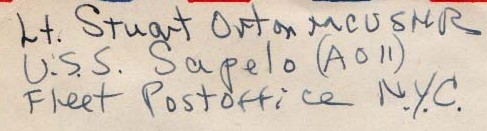 Lt. Stuart Orton MCUSNR
U.S.S. Sapelo (AO11)
Fleet Postoffice N.Y.C.